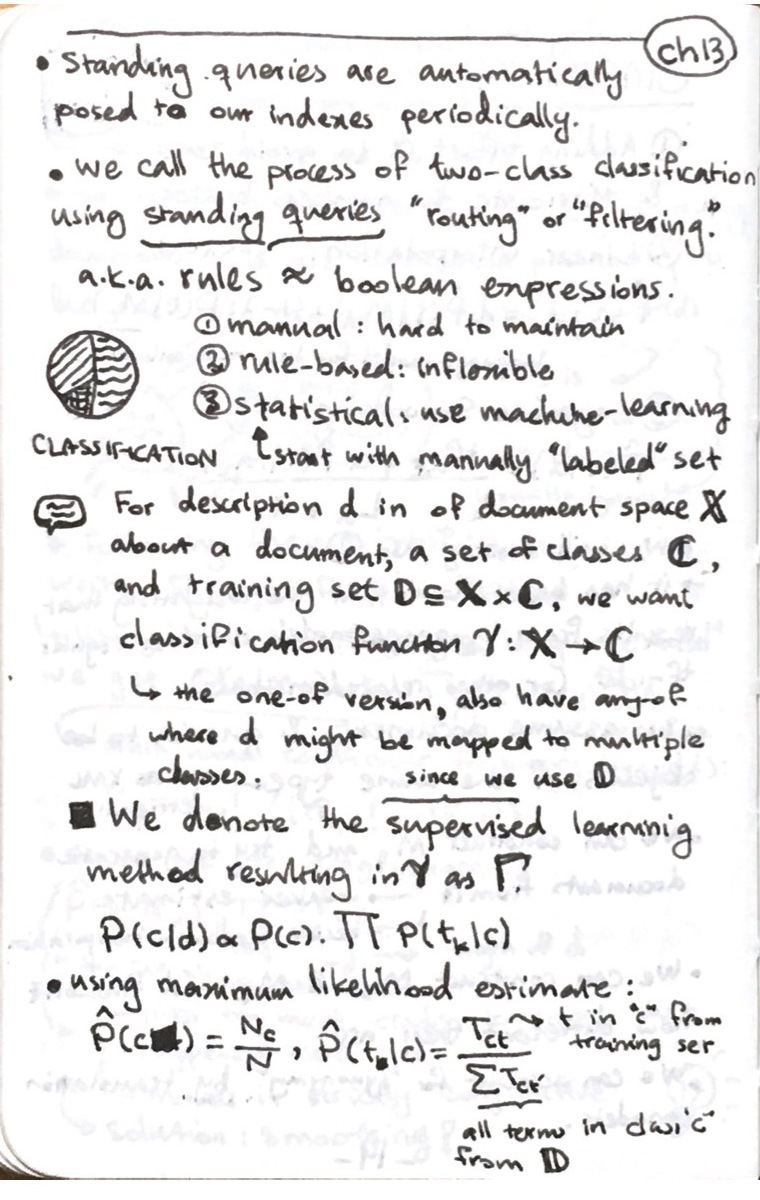 ch13
• Standing queries are automatically
posed to our indexes periodically.
• we call the process of two-class classification
using standing queries "routing" or "filtering."
a.k.a. rules ≈ boolean expressions.
① manual : hard to maintain
② rule-based: inflexible
③ statistical: use machine-learning
CLASSIFICATION ↑ start with manually "labeled" set
For description d in of document space 𝕏
about a document, a set of classes ℂ,
and training set 𝔻 ⊆ 𝕏 × ℂ, we want
classification function γ: 𝕏 → ℂ
↳ the one-of version, also have any-of
where d might be mapped to multiple
classes. since we use 𝔻
■ We denote the supervised learnnig
method resulting in γ as Γ.
P(c|d) ∝ P(c). ∏ P(t_k|c)
• using maximum likelihood estimate :
P̂(c) = N_c/N , P̂(t_k|c) = T_ct / ∑ T_ct' ⇝ t in "c" from
training set
all terms in class "c"
from 𝔻